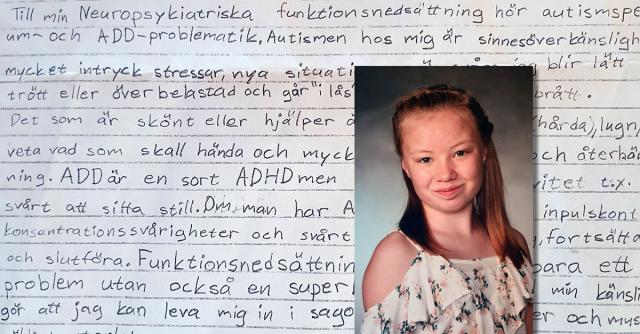 Till min Neuropsykiatriska funktionsnedsättning hör autismspe
um- och ADD-problematik. Autismen hos mig är sinnesöverkänsligh
mycket intryck stressar, nya situati jag blir lätt
trött eller överbelastad och går "i lås brått.
Det som är skönt eller hjälper ä (hårda), lugn,
veta vad som skall hända och myck och återhä
ning. ADD är en sort ADHD men vitet t.x.
svårt att sitta still. Om man har A inpulskont
konsentrationssvårigheter och svårt , fortsätta
och slutföra. Funktionsnedsättnin bara ett
problem utan också en super min känsli
gör att jag kan leva mig in i sago er och mu